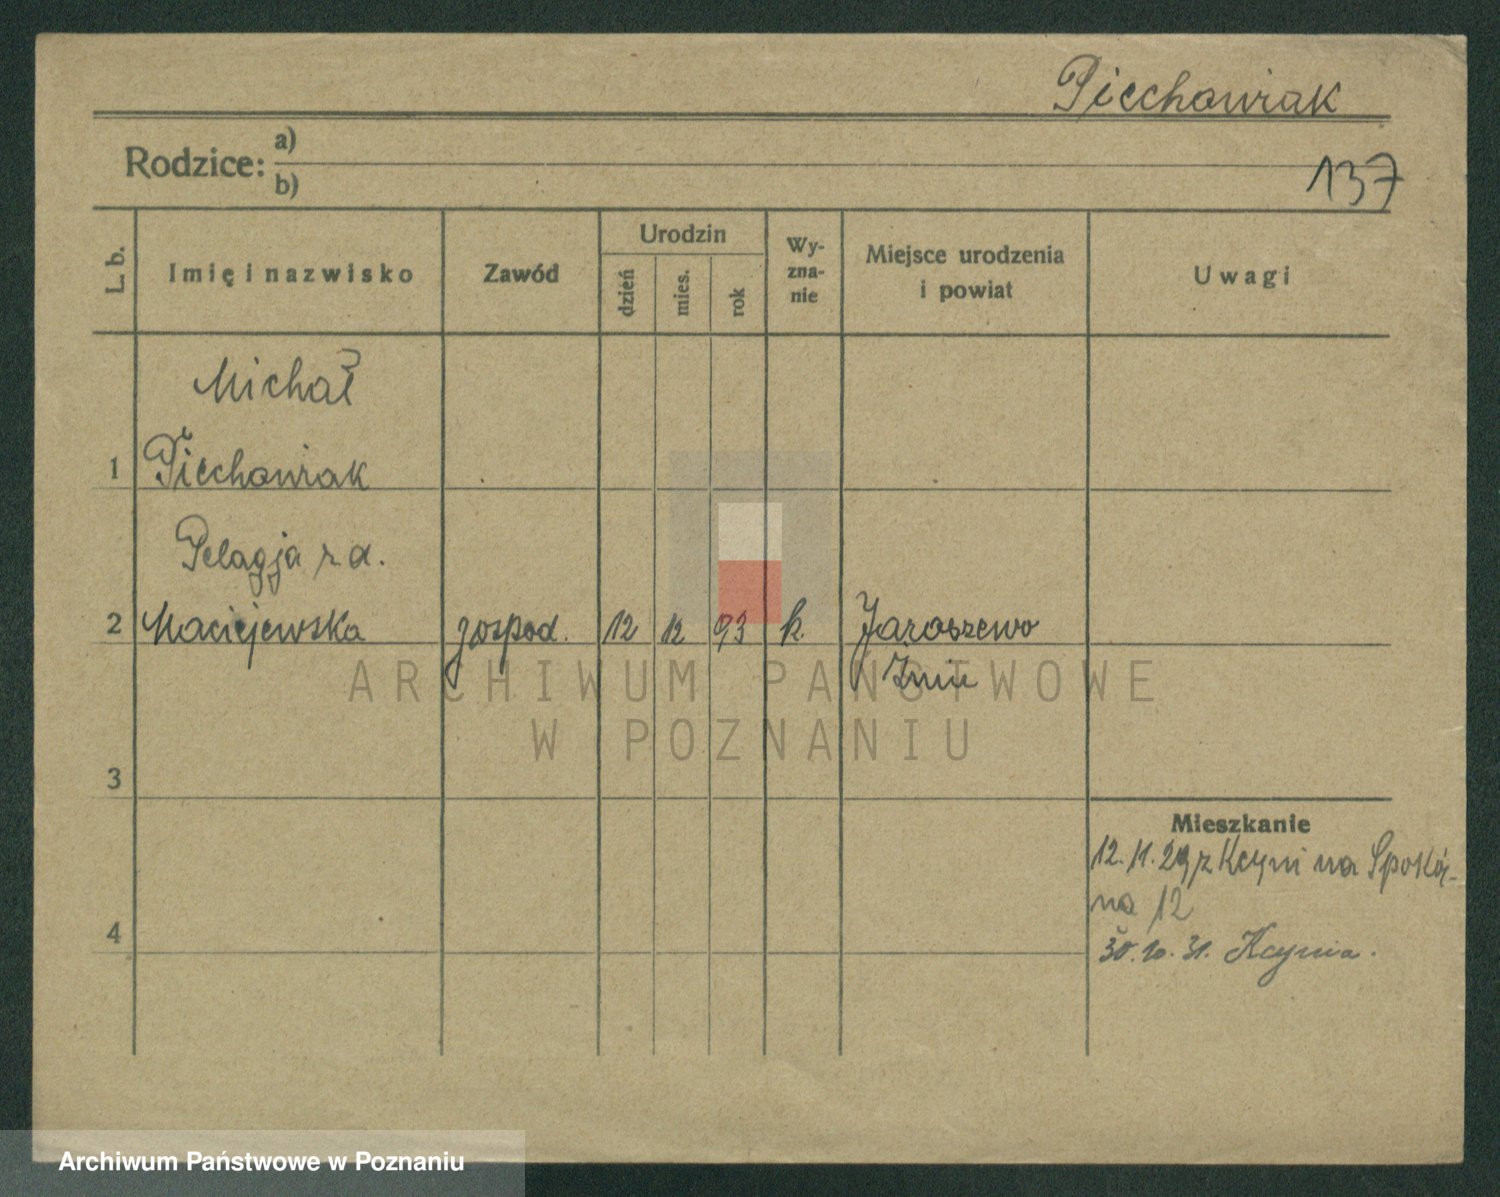 Piechowiak
Rodzice: a)
b)
137
L. b.
Imię i nazwisko
Zawód
Urodzin
dzień
mies.
rok
Wy-
zna-
nie
Miejsce urodzenia
i powiat
Uwagi
Michał
1 Piechowiak
Pelagja z d.
2 Maciejewska gospod. 12 12 93 k. Jaroszewo
Żnin
ARCHIWUM PAŃSTWOWE
W POZNANIU
3
Mieszkanie
12.11.29 z Kcyni na Spokój-
na 12
4
30.10.31. Kcynia.
Archiwum Państwowe w Poznaniu